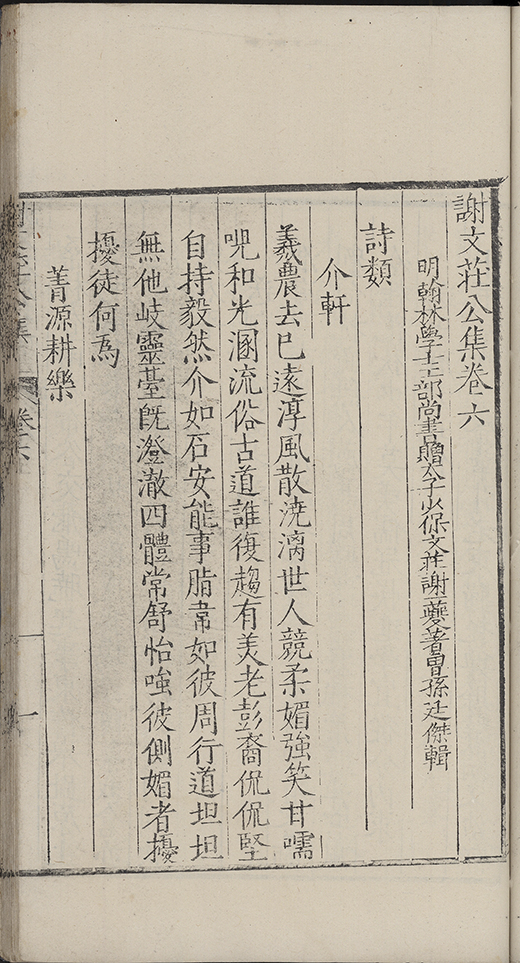 謝文莊公集卷六
明翰林學士工部尚書贈太子少保文莊謝一夔著曾孫廷傑輯
詩類
介軒
羲農去已遠淳風散澆漓世人競柔媚強笑甘嚅
唲和光溷流俗古道誰復趨有美老彭裔侃侃堅
自持毅然介如石安能事脂韋如彼周行道坦坦
無他岐靈薹旣澄澈四體常舒怡嗤彼側媚者擾
擾徒何為
菁源耕樂
卷六
一